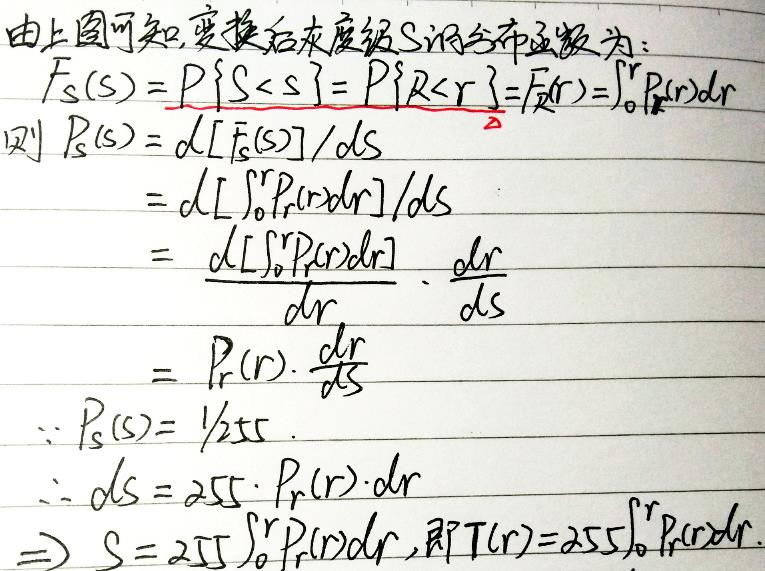 由上图可知,变换后灰度级S的分布函数为:
F_S(s) = P{S<s} = P{R<r} = F_R(r) = ∫₀ʳ P_r(r)dr
则 P_s(s) = d[F_s(s)]/ds
= d[∫₀ʳ P_r(r)dr]/ds
= d[∫₀ʳ P_r(r)dr]/dr · dr/ds
= P_r(r) · dr/ds
∵ P_s(s) = 1/255.
∴ ds = 255 · P_r(r) · dr
⇒ S = 255∫₀ʳ P_r(r)dr, 即T(r) = 255∫₀ʳ P_r(r)dr.